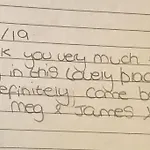 /19
k you very much
in this lovely
efinitely, come b
Meg & James x